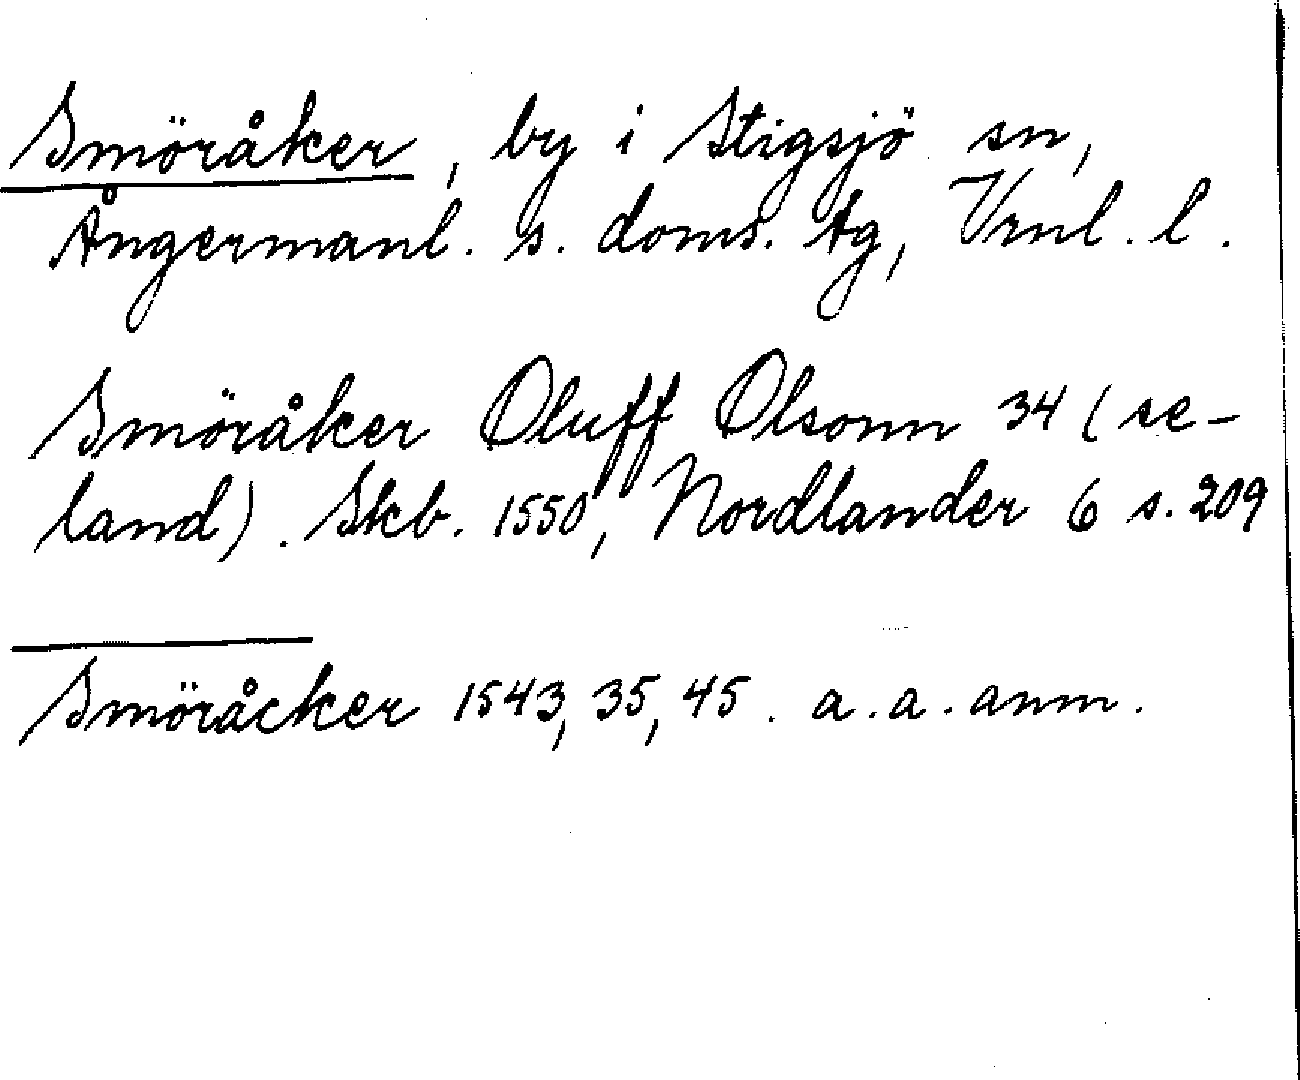 Smöråker, by i Stigsjö sn,
Ångermanl. s. doms. tg, Vrnl. l.
Smöråker Oluff Olsonn 34 (se-
land). Skb. 1550, Nordlander 6 s. 209
Smöråcker 1543, 35, 45. a. a. anm.